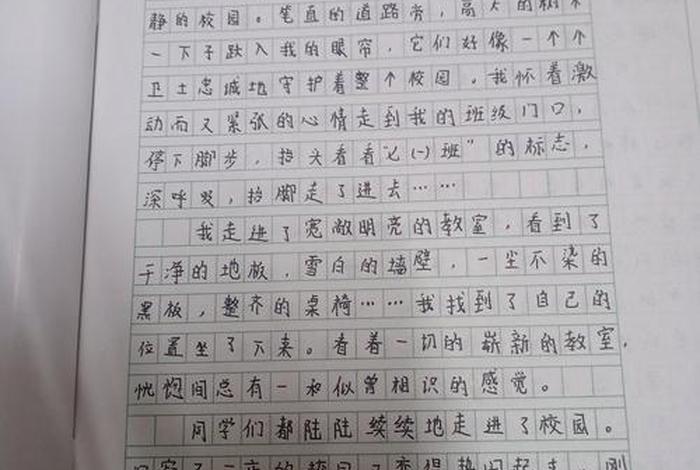 静的校园。笔直的道路旁，高大的树木
一下子跃入我的眼帘，它们好像一个个
卫士忠城地守护着整个校园。我怀着激
动而又紧张的心情走到我的班级门口，
停下脚步，抬头看看“七(一)班”的标志，
深呼吸，抬脚走了进去……
我走进了宽敞明亮的教室，看到了
干净的地板，雪白的墙壁，一尘不染的
黑板，整齐的桌椅……我找到了自己的
位置坐了下来。看着一切的崭新的教室，
恍惚间总有一种似曾相识的感觉。
同学们都陆陆续续地走进了校园。